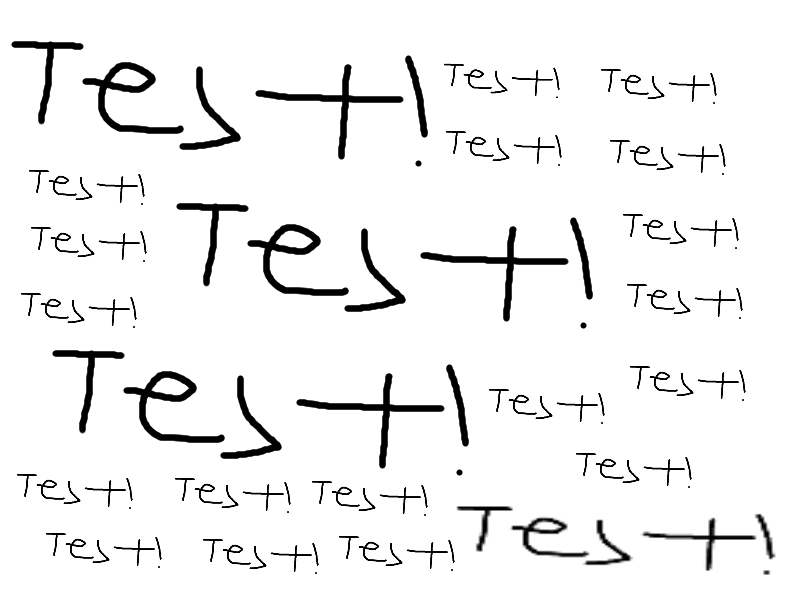 Test!
Test! Test!
Test! Test!
Test!
Test!
Test!
Test!
Test!
Test!
Test!
Test!
Test!
Test!
Test!
Test! Test! Test!
Test!
Test! Test! Test!